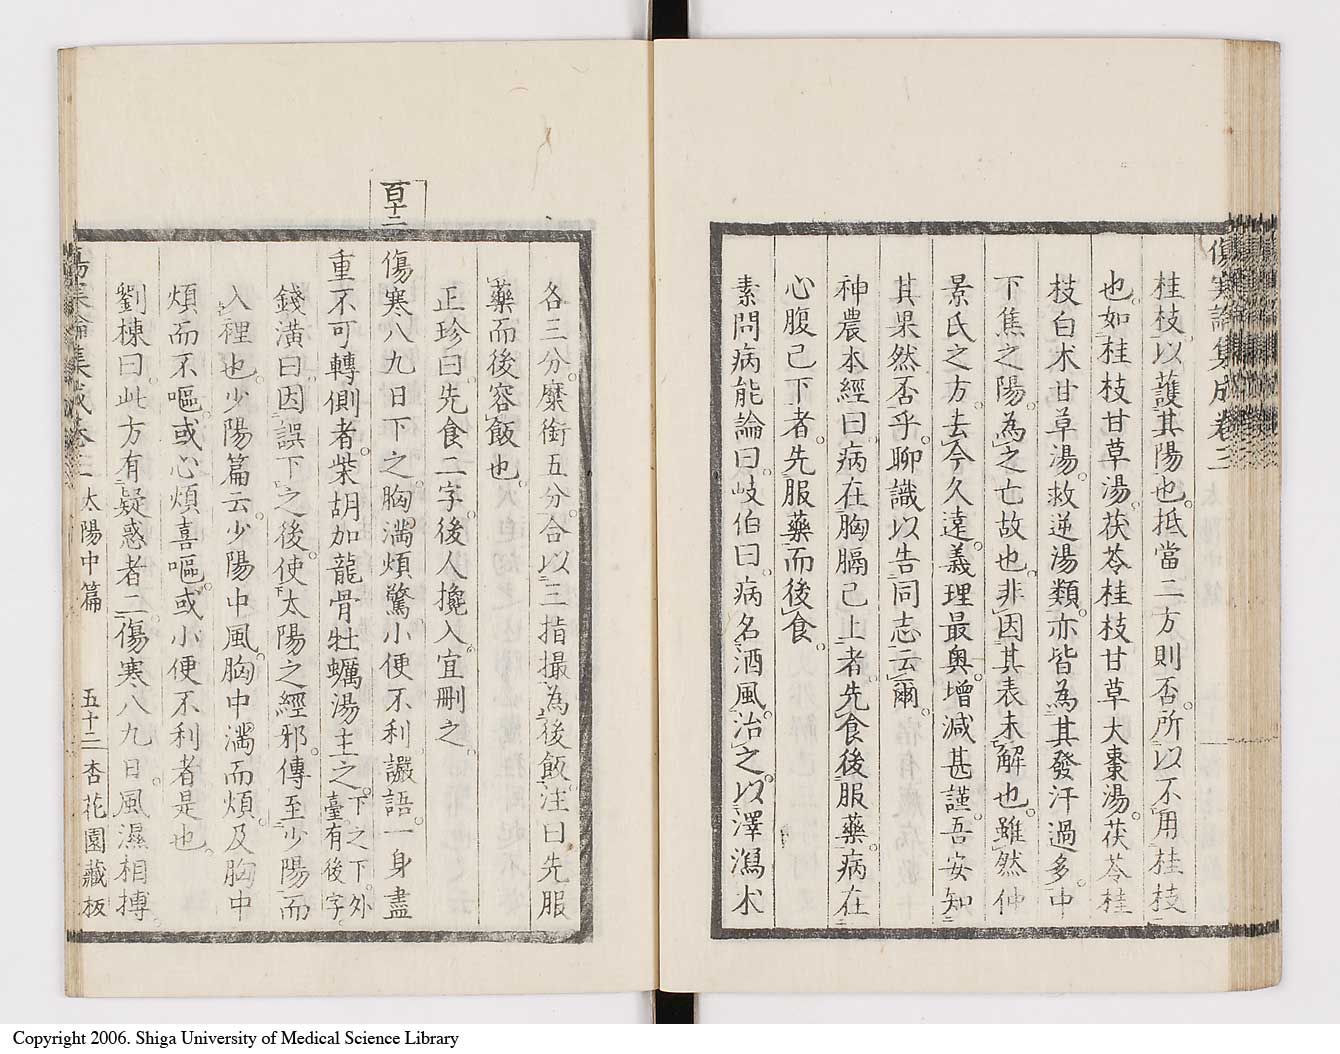 傷寒論集成卷三
桂枝以護其陽也。抵當二方則否。所以不用桂枝
也。如桂枝甘草湯。茯苓桂枝甘草大棗湯。茯苓桂
枝白朮甘草湯。救逆湯類。亦皆為其發汗過多。中
下焦之陽。為之亡故也。非因其表未解也。雖然仲
景氏之方。去今久遠。義理最奧。增減甚謹。吾安知
其果然否乎。聊識以告同志云爾。
神農本經曰。病在胸膈已上者。先食後服藥。病在
心腹已下者。先服藥而後食。
素問病能論曰。岐伯曰。病名酒風。治之。以澤瀉朮
各三分。糜銜五分。合以三指撮。為後飯。注曰。先服
藥而後容飯也。
正珍曰。先食二字。後人攙入。宜刪之。
百十二
傷寒八九日下之。胸滿煩驚小便不利讝語一身盡
重不可轉側者。柴胡加龍骨牡蠣湯主之。下之下。外臺有後字。
錢潢曰。因誤下之後。使太陽之經邪。傳至少陽。而
入裡也。少陽篇云。少陽中風。胸中滿而煩。及胸中
煩而不嘔。或心煩喜嘔。或小便不利者是也。
劉棟曰。此方有疑惑者二。傷寒八九日。風濕相摶
傷寒論集成卷三 太陽中篇 五十二 杏花園藏板
Copyright 2006. Shiga University of Medical Science Library